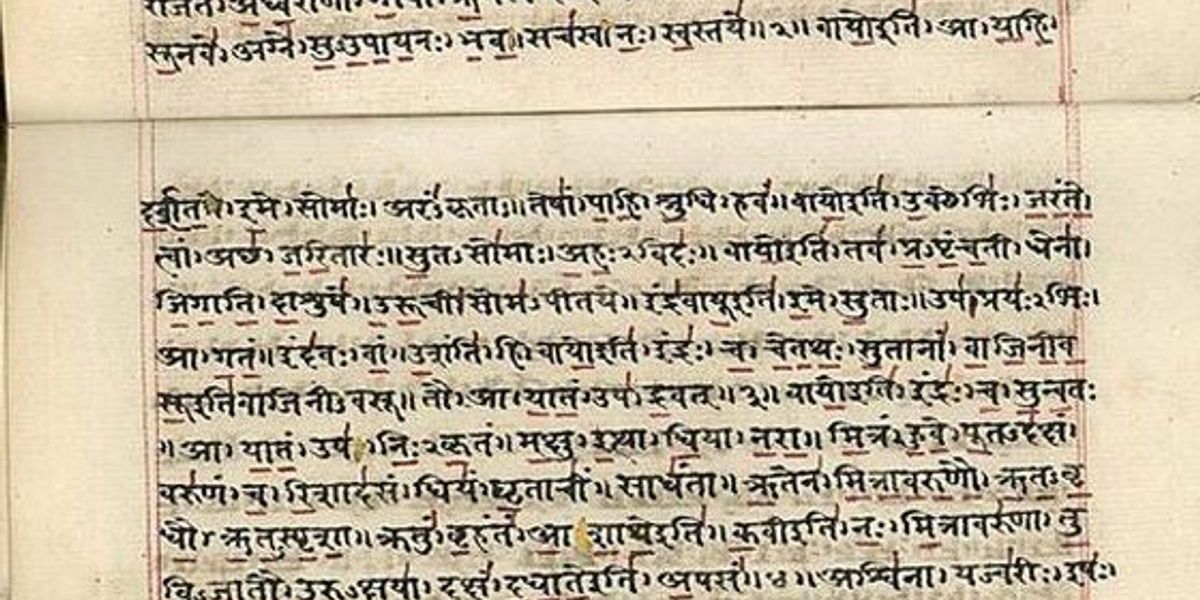 राजंतं। अध्वराणां। गोपां।
सूनवे। अग्ने। सुऽउपायनः। भव। सचस्व। नः। स्वस्तये॥२॥ वायोइति। आ। याहि।
दर्शत। इमे। सोमाः। अरंऽकृताः॥ तेषां। पाहि। श्रुधि। हवं॥ वायोइति। उक्थेभिः। जरंते।
त्वां। अच्छ। जरितारः॥ सुतऽसोमाः। अहःऽविदः॥ वायोइति। तव। प्रऽपृंचती। धेना।
जिगाति। दाशुषे॥ उरूची। सोमऽपीतये॥ इंद्रवायूइति। इमे। सुताः॥ उप। प्रयःऽभिः।
आ। गतं॥ इंदवः। वां। उशंति। हि। वायोइति। इंद्रः। च। चेतथः। सुतानां। वाजिनीव
सूइतिवाजिनीऽवसू॥ तौ। आ। यातं। उप। द्रवत्॥३॥ वायोइति। इंद्रः। च। सुन्वतः
॥ आ। यातं। उप। निःऽकृतं॥ मक्षु। इत्था। धिया। नरा॥ मित्रं। हुवे। पूतऽदक्षं।
वरुणं। च। रिशादसं। धियं। घृताचीं। साधंता॥ ऋतेन। मित्रावरुणौ। ऋतऽवृ
धौ। ऋतऽस्पृशा॥ ऋतुं। बृहंतं। आशाथेइति॥ कवीइति। नः। मित्रावरुणा। तु
विऽजातौ। उरुऽक्षया। दक्षं। दधातेइति। अपसं॥४॥ अश्विना। यज्वरीः। इषः।